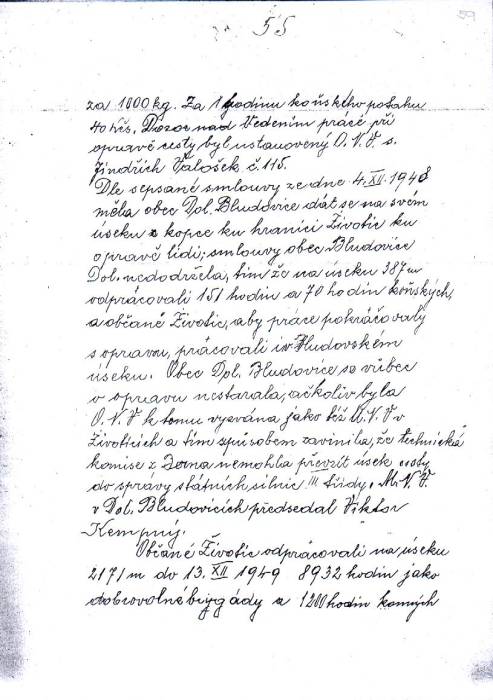 55
59
za 1000 kg. Za 1 hodinu koňského potahu
40 Kčs. Dozor nad vedením práce při
opravě cesty byl ustanovený O.N.V. s.
Jindřich Valošek č. 115.
Dle sepsané smlouvy ze dne 4. XII. 1948
měla obec Dol. Bludovice dát se na svém
úseku z kopce ku hranici Životic ku
opravě lidi; smlouvy obec Bludovice
Dol. nedodržela, tím že na úseku 387 m
odpracovali 151 hodin a 70 hodin koňských,
a občané Životic, aby práce pokračovaly
s opravou, pracovali i v Bludovském
úseku. Obec Dol. Bludovice se vůbec
o opravu nestarala, ačkoliv byla
O.N.V. k tomu vyzvána jako též M.N.V. v
Životicích a tím způsobem zavinila, že technická
komise z Brna nemohla převzít úsek cesty
do správy státních silnic III. třídy. M.N.V.
v Dol. Bludovicích předsedal Viktor
Kempný.
Občané Životic odpracovali na úseku
2171 m do 13. XII 1949 8932 hodin jako
dobrovolné brigády a 1200 hodin konných